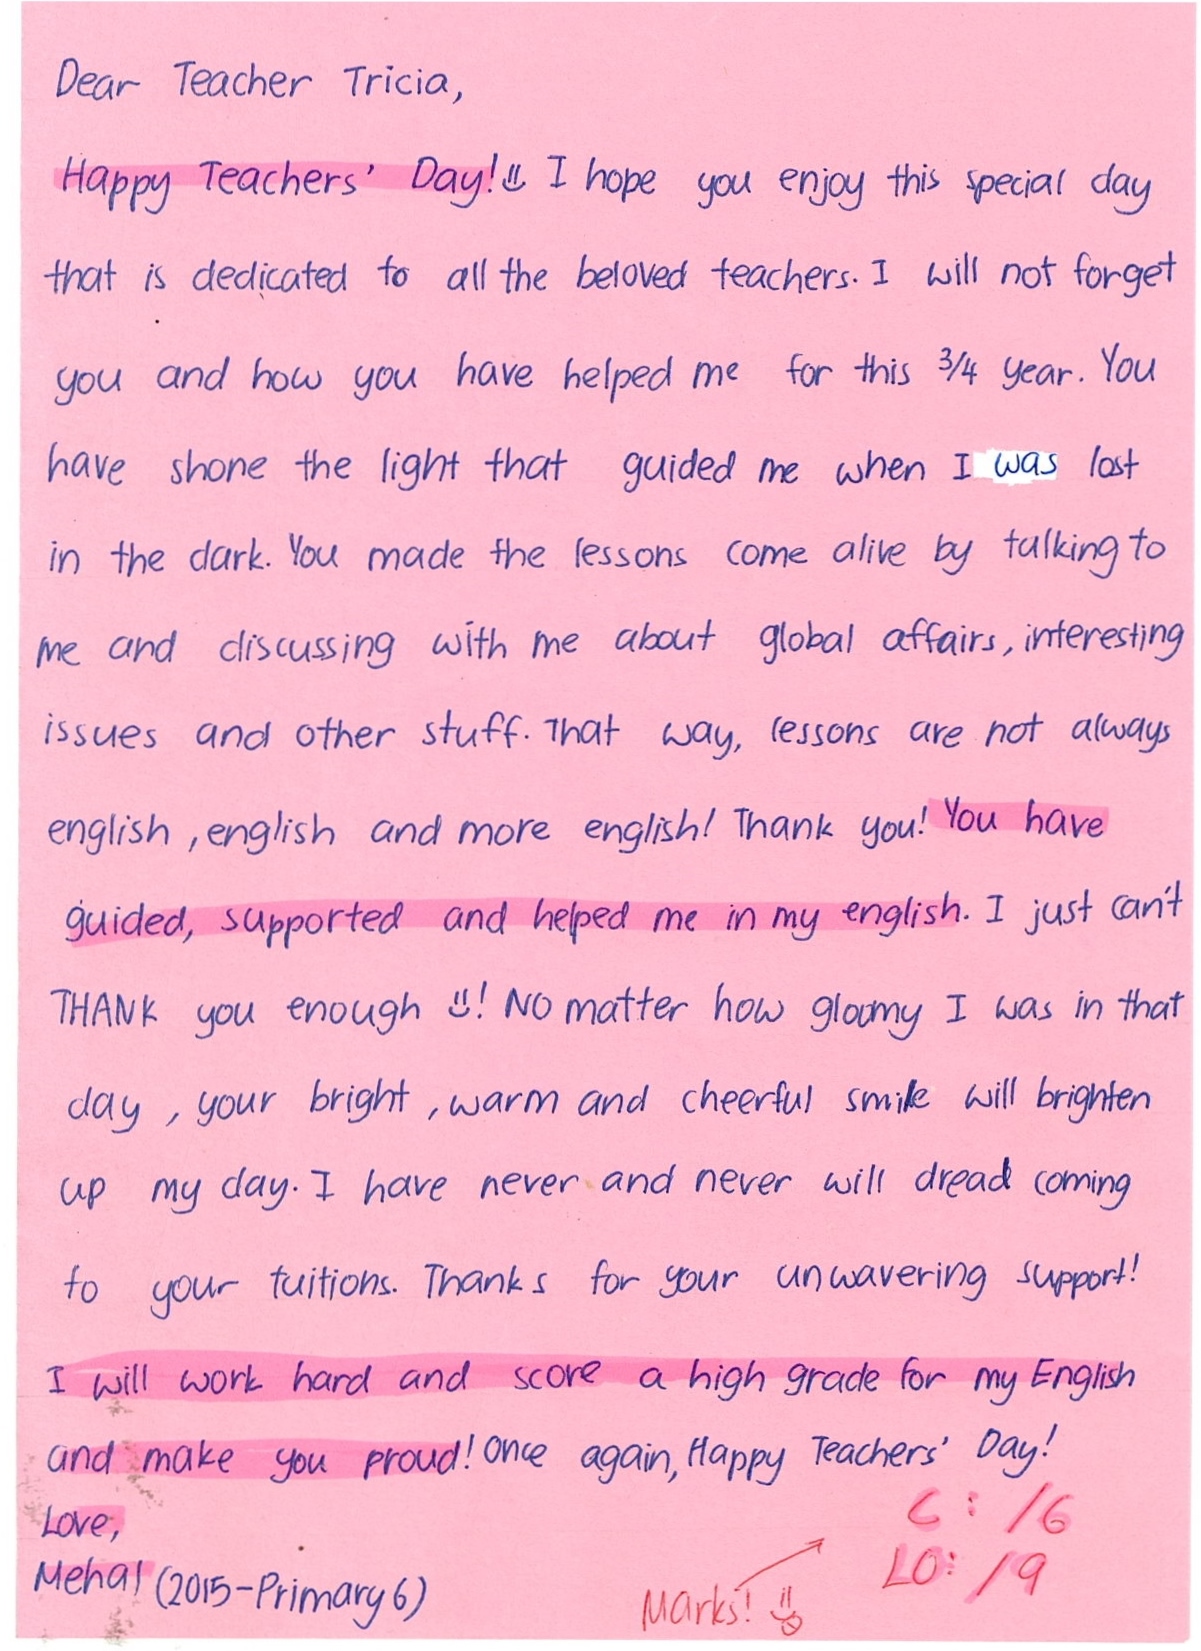 Dear Teacher Tricia,
Happy Teachers' Day! I hope you enjoy this special day
that is dedicated to all the beloved teachers. I will not forget
you and how you have helped me for this 3/4 year. You
have shone the light that guided me when I was lost
in the dark. You made the lessons come alive by talking to
me and discussing with me about global affairs, interesting
issues and other stuff. That way, lessons are not always
english, english and more english! Thank you! You have
guided, supported and helped me in my english. I just can't
THANK you enough! NO matter how gloomy I was in that
day, your bright, warm and cheerful smile will brighten
up my day. I have never and never will dread coming
to your tuitions. Thanks for your unwavering support!
I will work hard and score a high grade for my English
and make you proud! Once again, Happy Teachers' Day!
Love,
Mehal (2015-Primary 6)
C: /6
LO: /9
Marks!